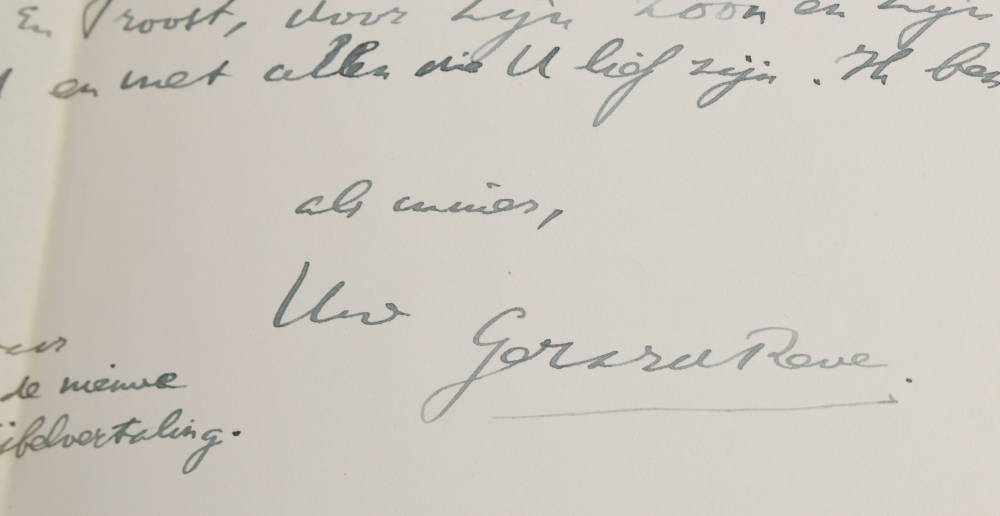 En Troost, door Zijn Zoon en Zijn
en met allen die U lief zijn. Ik ben
als immer,
Uw
Gerard Reve.
de nieuwe
ijbelvertaling.